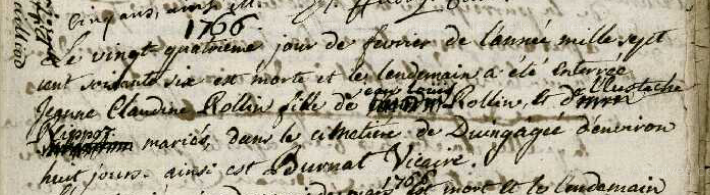 cinq ans, ainsi est.
1766
Le vingt quatrieme jour de fevrier de l'année mille sept
cent soixante six est morte et le lendemain a été enterrée
Jeanne Claudine Rollin fille de jean louis Rollin, et d'Eustache
Nippoz mariés, dans le cimetiere de Duingagée d'environ
huit jours. ainsi est Burnat Vicaire.
1766
est mort et le lendemain